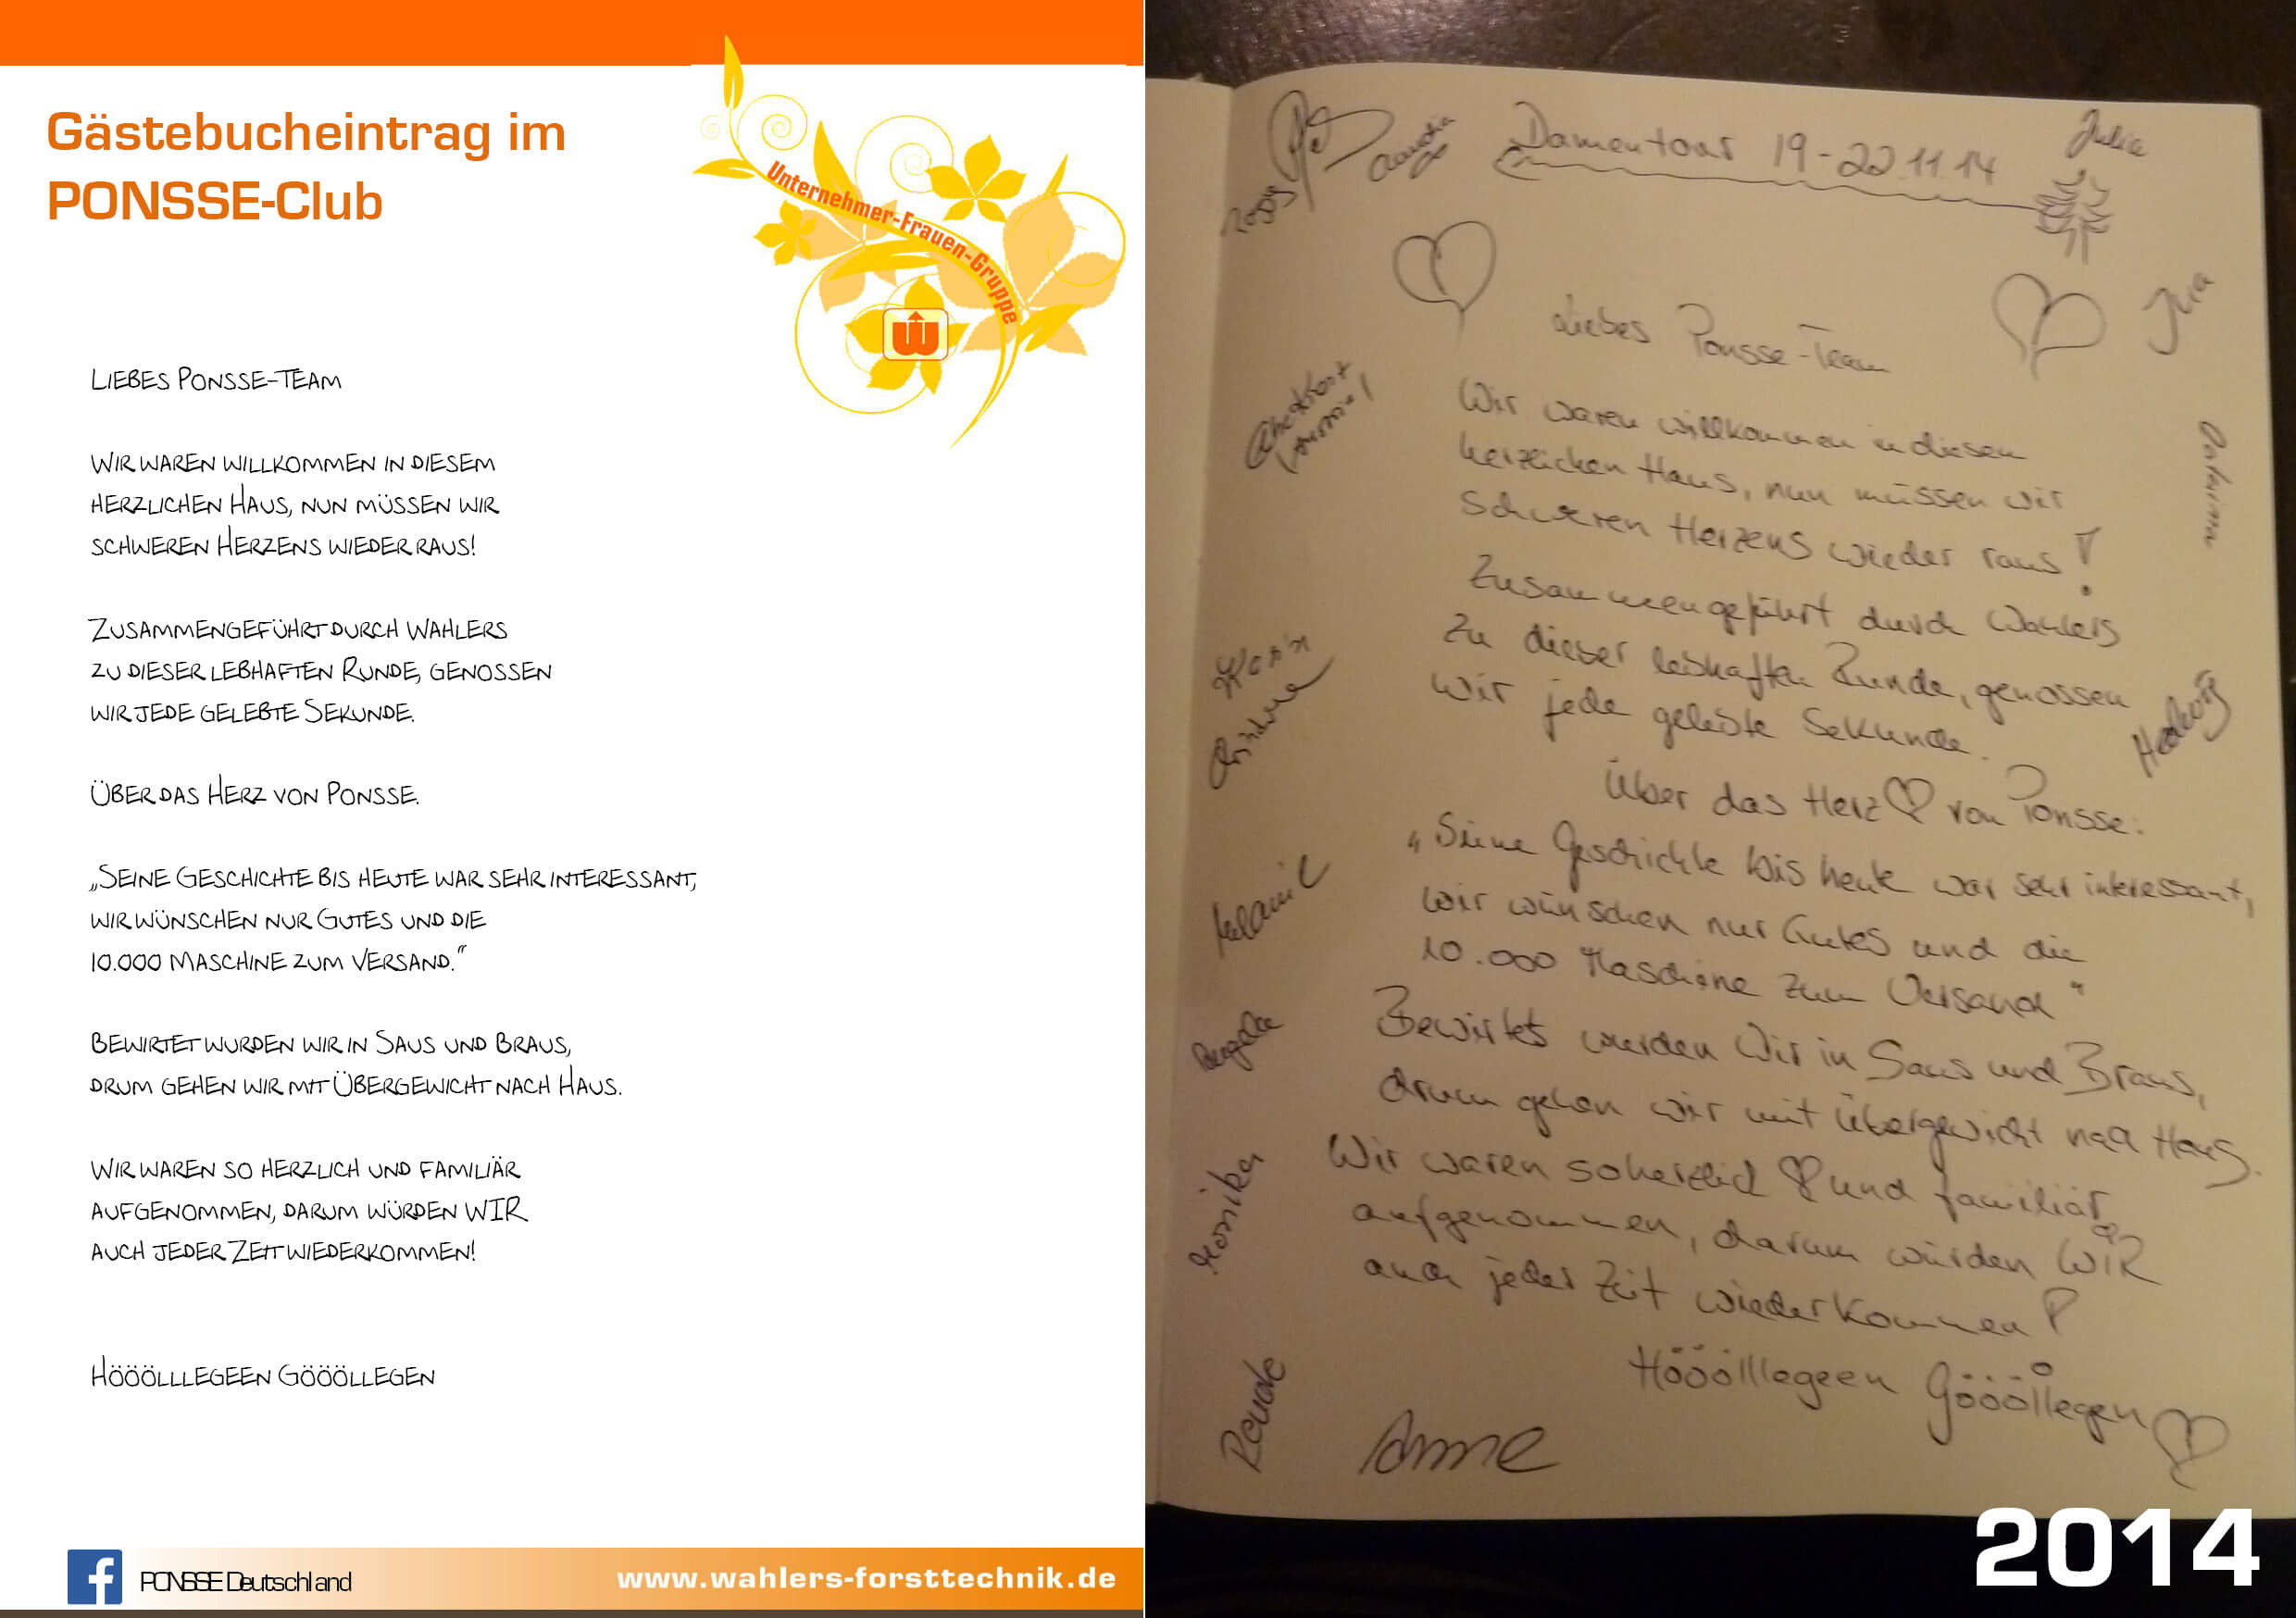 Gästebucheintrag im
PONSSE-Club
Unternehmer-Frauen-Gruppe
W
LIEBES PONSSE-TEAM
WIR WAREN WILLKOMMEN IN DIESEM
HERZLICHEN HAUS, NUN MÜSSEN WIR
SCHWEREN HERZENS WIEDER RAUS!
ZUSAMMENGEFÜHRT DURCH WAHLERS
ZU DIESER LEBHAFTEN RUNDE, GENOSSEN
WIR JEDE GELEBTE SEKUNDE.
ÜBER DAS HERZ VON PONSSE.
„SEINE GESCHICHTE BIS HEUTE WAR SEHR INTERESSANT,
WIR WÜNSCHEN NUR GUTES UND DIE
10.000 MASCHINE ZUM VERSAND.“
BEWIRTET WURDEN WIR IN SAUS UND BRAUS,
DRUM GEHEN WIR MIT ÜBERGEWICHT NACH HAUS.
WIR WAREN SO HERZLICH UND FAMILIÄR
AUFGENOMMEN, DARUM WÜRDEN WIR
AUCH JEDER ZEIT WIEDERKOMMEN!
HÖÖÖLLLEGEEN GÖÖÖLLEGEN
PONSSE Deutschland
www.wahlers-forsttechnik.de
Damentour 19-22.11.14
Julia
Claudia
Liebes Ponsse-Team
Wir waren willkommen in diesem
herzlichen Haus, nun müssen wir
schweren Herzens wieder raus!
Zusammengeführt durch Wahlers
zu dieser lebhaften Runde, genossen
wir jede gelebte Sekunde.
Über das Herz von Ponsse:
„Seine Geschichte bis heute war sehr interessant,
wir wünschen nur Gutes und die
10.000 Maschine zum Versand“
Bewirtet wurden wir in Saus und Braus,
drum gehen wir mit Übergewicht nach Haus.
Wir waren so herzlich und familiär
aufgenommen, darum würden WIR
auch jeder Zeit wiederkommen!
Hööölllegeen Gööölegen
Karin
Hedwig
Melanie
Angela
Monika
Anne
2014